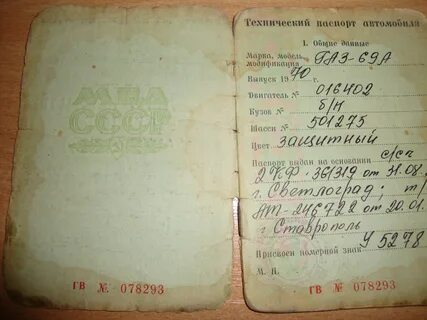 МВД
СССР
ГВ № 078293
Технический паспорт автомобиля
I. Общие данные
Марка, модель, модификация ГАЗ-69А
Выпуск 1970 г.
Двигатель № 016402
Кузов № б/н
Шасси № 501275
Цвет защитный
Паспорт выдан на основании с/сч
2КФ 361319 от 31.08.
г. Светлоград; т/
АТ-246722 от 20.01.
г. Ставрополь
Присвоен номерной знак У 5278
М. П.
ГВ № 078293